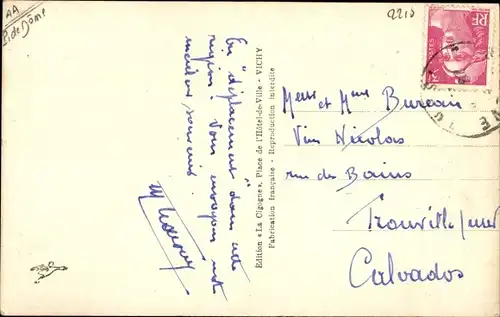 AA
P. de Dôme
2210
RF
POSTES
En "déplacement" dans cette
région. Vous envoyons nos
meilleurs souvenirs.
Édition « La Cigogne », Place de l'Hôtel-de-Ville - VICHY
Fabrication française - Reproduction interdite
et Mme Bureau
Vins Nicolas
rue des Bains
Trouville s/mer
Calvados